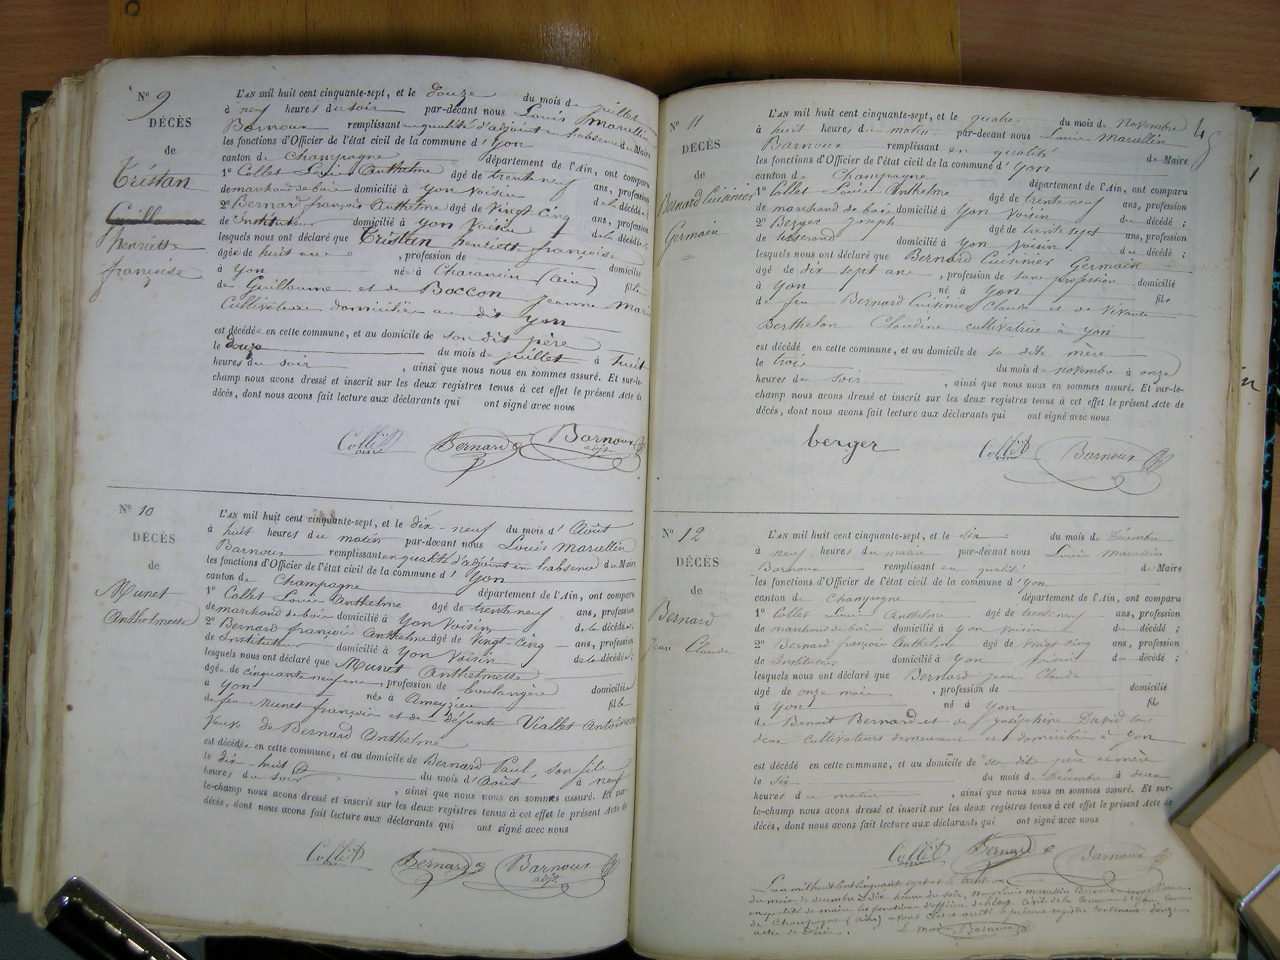 N° 9
DÉCÈS
de
Tristan
Guillaume
henriette
françoise
L'AN mil huit cent cinquante-sept, et le douze du mois de juillet
à neuf heures du soir par-devant nous Louis Marcellin
Barnoux remplissant en qualité d'adjoint en l'absence du Maire
les fonctions d'Officier de l'état civil de la commune d'Yon
canton de Champagne département de l'Ain, ont comparu
1° Collet Louis Anthelme âgé de trente neuf ans, profession
de marchand de bois domicilié à Yon Voisin de la décédée ;
2° Bernard françois Anthelme âgé de Vingt cinq ans, profession
de Instituteur domicilié à Yon Voisin de la décédée ;
lesquels nous ont déclaré que Tristan henriette françoise
âgée de huit ans , profession de domicilié
à Yon née à Charancin (ain) fille
de Guillaume et de Boccon Jeanne Marie
Cultivateurs domiciliés au dit Yon
est décédée en cette commune, et au domicile de son dit père
le douze du mois de juillet à huit
heures du soir , ainsi que nous nous en sommes assuré. Et sur-le-
champ nous avons dressé et inscrit sur les deux registres tenus à cet effet le présent Acte de
décès, dont nous avons fait lecture aux déclarants qui ont signé avec nous
Collet Bernard Barnoux
adjt
N° 10
DÉCÈS
de
Munet
Anthelmette
L'AN mil huit cent cinquante-sept, et le dix-neuf du mois d'Août
à huit heures du matin par-devant nous Louis Marcellin
Barnoux remplissant en qualité d'adjoint en l'absence du Maire
les fonctions d'Officier de l'état civil de la commune d'Yon
canton de Champagne département de l'Ain, ont comparu
1° Collet Louis Anthelme âgé de trente neuf ans, profession
de marchand de bois domicilié à Yon Voisin de la décédée ;
2° Bernard françois Anthelme âgé de Vingt-Cinq ans, profession
de Instituteur domicilié à Yon Voisin de la décédée ;
lesquels nous ont déclaré que Munet Anthelmette
âgée de cinquante neuf ans , profession de boulangère domiciliée
à Yon née à Ameyzieu fille
de feu Munet françois et de défunte Viallet Antoinette
Veuve de Bernard Anthelme
est décédée en cette commune, et au domicile de Bernard Paul, son fils
le dix-huit du mois d'Août à neuf
heures du soir , ainsi que nous nous en sommes assuré. Et sur-
le-champ nous avons dressé et inscrit sur les deux registres tenus à cet effet le présent Acte de
décès, dont nous avons fait lecture aux déclarants qui ont signé avec nous
Collet Bernard Barnoux
adjt
N° 11
DÉCÈS
de
Bernard Cuisinier
Germain
L'AN mil huit cent cinquante-sept, et le quatre du mois de Novembre
à huit heures du matin par-devant nous Louis Marcellin
Barnoux remplissant en qualité de Maire
les fonctions d'Officier de l'état civil de la commune d'Yon
canton de Champagne département de l'Ain, ont comparu
1° Collet Louis Anthelme âgé de trente neuf ans, profession
de marchand de bois domicilié à Yon Voisin du décédé ;
2° Berger Joseph âgé de trente sept ans, profession
de tisserand domicilié à Yon Voisin du décédé ;
lesquels nous ont déclaré que Bernard Cuisinier Germain
âgé de dix sept ans , profession de sans profession domicilié
à Yon né à Yon fils
de feu Bernard Cuisinier Claude et de Vivante
Berthelon Claudine cultivatrice à Yon
est décédé en cette commune, et au domicile de sa dite mère
le trois du mois de novembre à onze
heures du soir , ainsi que nous nous en sommes assuré. Et sur-le-
champ nous avons dressé et inscrit sur les deux registres tenus à cet effet le présent Acte de
décès, dont nous avons fait lecture aux déclarants qui ont signé avec nous
berger Collet Barnoux
N° 12
DÉCÈS
de
Bernard
Jean Claude
L'AN mil huit cent cinquante-sept, et le six du mois de Décembre
à neuf heures du matin par-devant nous Louis Marcellin
Barnoux remplissant en qualité de Maire
les fonctions d'Officier de l'état civil de la commune d'Yon
canton de Champagne département de l'Ain, ont comparu
1° Collet Louis Anthelme âgé de trente neuf ans, profession
de marchand de bois domicilié à Yon Voisin du décédé ;
2° Bernard françois Anthelme âgé de vingt cinq ans, profession
de Instituteur domicilié à Yon du décédé ;
lesquels nous ont déclaré que Bernard Jean Claude
âgé de onze mois , profession de domicilié
à Yon né à Yon fils
de Benoit Bernard et de Joséphine David tous
deux Cultivateurs demeurant et domiciliés à Yon
est décédé en cette commune, et au domicile de ses dits père et mère
le Six du mois de Décembre à deux
heures du matin , ainsi que nous nous en sommes assuré. Et sur-
le-champ nous avons dressé et inscrit sur les deux registres tenus à cet effet le présent Acte de
décès, dont nous avons fait lecture aux déclarants qui ont signé avec nous
Collet Bernard Barnoux
L'an mil huit cent cinquante sept et le trente
du mois de décembre à dix heures du soir, nous Louis Marcellin Barnoux
en qualité de maire les fonctions d'officier de l'état civil de la Commune d'Yon, Canton
de Champagne (ain) avons clos et arrêté le présent registre contenant douze
actes de décès. Le maire Barnoux